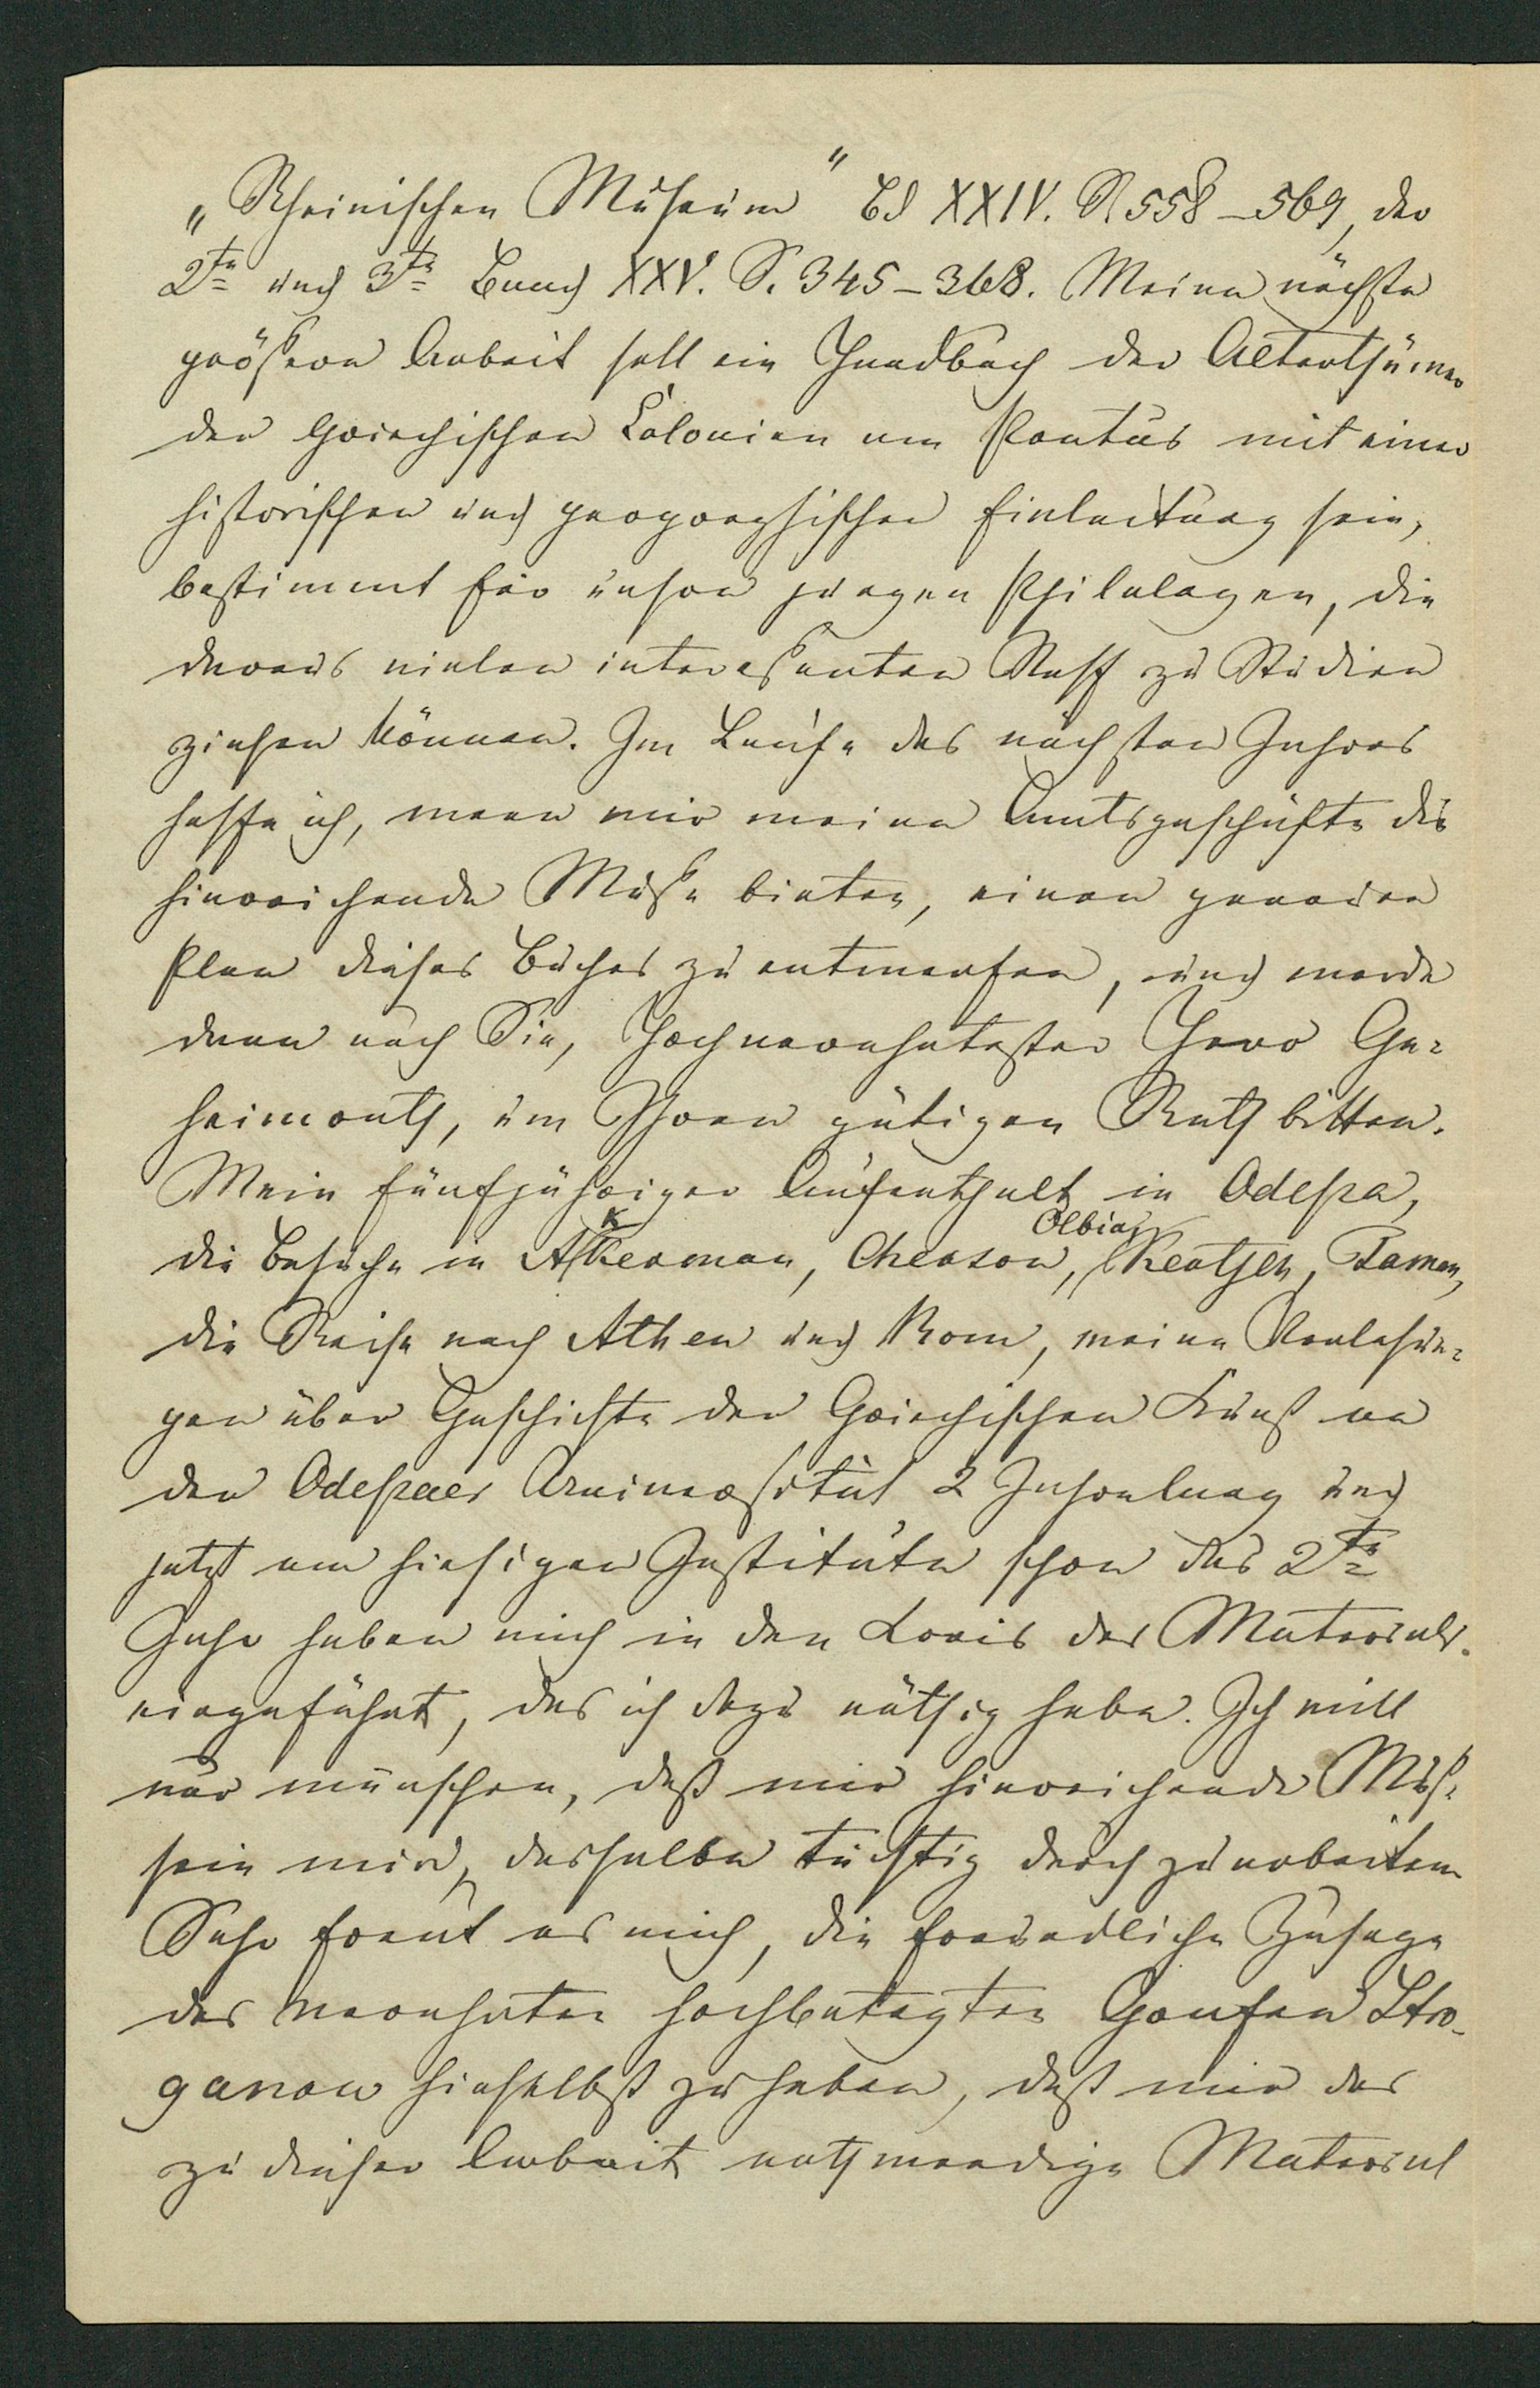 „Rheinischen Museum“ Bd XXIV. S. 558–569, der
2te und 3te Band XXV. S. 345–368. Meine nächste
größere Arbeit soll ein Handbuch der Alterthümer
der Griechischen Colonien am Pontus mit einer
historischen und geographischen Einleitung sein,
bestimmt für unsere jungen Philologen, die
daraus vielen interessanten Stoff zu Studien
ziehen können. Im Laufe des nächsten Jahres
hoffe ich, wenn mir meine Amtsgeschäfte die
hinreichende Muße bieten, einen genauen
Plan dieses Buches zu entwerfen, und werde
dann auch Sie, Hochverehrtester Herr Ge=
heimrath, um Ihren gütigen Rath bitten.
Mein fünfjähriger Aufenthalt in Odessa,
die Besuche in Akkerman, Cherson, Olbia, Kertsch, Taman,
die Reise nach Athen und Rom, meine Vorlesun=
gen über Geschichte der Griechischen Kunst an
der Odessaer Universität 2 Jahrelang und
jetzt am hiesigen Institute schon das 2te
Jahr haben mich in den Kreis des Materials
eingeführt, das ich dazu nöthig habe. Ich will
nur wünschen, daß mir hinreichende Muße
sein wird, dasselbe tüchtig durch zu arbeiten
Sehr freut es mich, die freundliche Zusage
des verehrten hochbetagten Grafen Stro-
ganow hieselbst zu haben, daß mir das
zu dieser Arbeit nothwendige Material